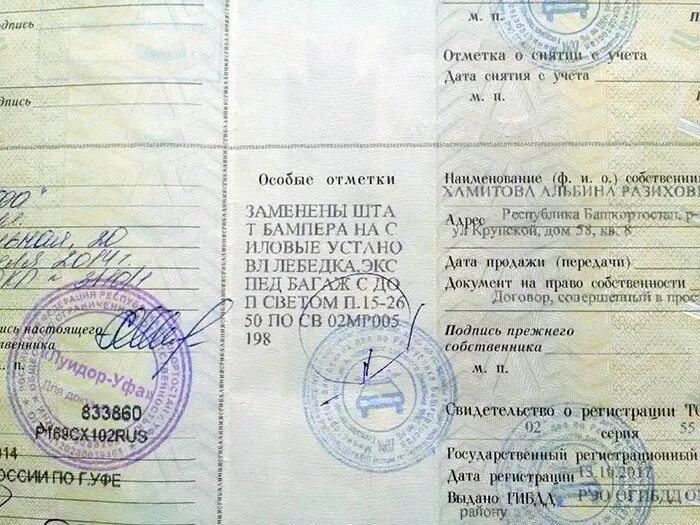 подпись
м. п.
дпись
Ь НАЯ, 20
2014г.
ись настоящего
ственника
РЕСПУБ
ОГРАНИЧЕН
«Луидор-Уфа»
Для доку
833860
Р169СХ102RUS
0260039461
014
ОССИИ ПО Г.УФЕ
Особые отметки
ЗАМЕНЕНЫ ШТА
Т БАМПЕРА НА С
ИЛОВЫЕ УСТАНО
ВЛ ЛЕБЕДКА,ЭКС
ПЕД БАГАЖ С ДО
П СВЕТОМ П.15-26
50 ПО СВ 02МР005
198
м. п.
Отметка о снятии с учета
Дата снятия с учета
м. п.
Наименование (ф. и. о.) собственни
ХАМИТОВА АЛЬБИНА РАЗИХОВ
Адрес Республика Башкортостан, р-
ул Крупской, дом 58, кв. 8
Дата продажи (передачи)
Документ на право собственности
Договор, совершенный в прос
Подпись прежнего
собственника
м. п.
Свидетельство о регистрации ТС
02 серия 55
Государственный регистрационный
Дата регистрации 13.10.2017
Выдано ГИБДД РЭО ОГИБДД О
району